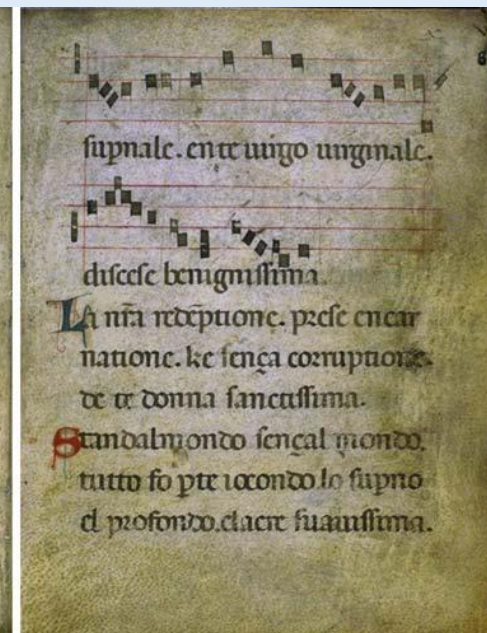 supnale. en te uirgo uirginale.
discese benignissima.
La nr̃a redẽptione. prese encar
natione. ke sença corruptione.
de te donna sanctissima.
Standalmondo sençal mondo.
tutto fo pte iocondo. lo supno
el profondo. elaere suauissima.